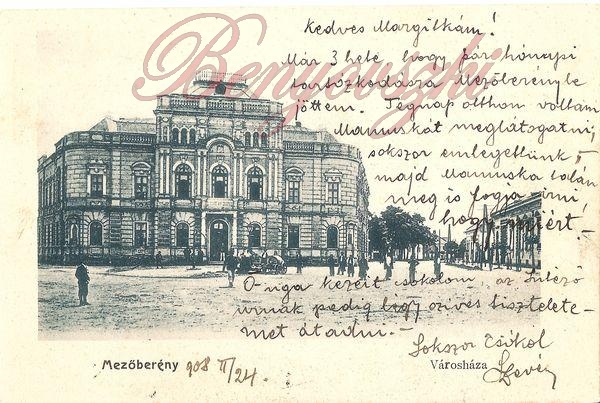 Benyovszki
Kedves Margitkám!
Már 3 hete, hogy pár hónapi
tartózkodásra Mezőberénybe
jöttem. Tegnap otthon voltam
Mamuskát meglátogatni,
sokszor emlegettünk,
majd Mamuska talán
meg is fogja írni,
hogy miért.-
Ő-nga kezeit csókolom, az Intéző
urnak pedig légy szives tisztelete-
met átadni.-
Sokszor csókol
Mezőberény 908 II/24.
Városháza